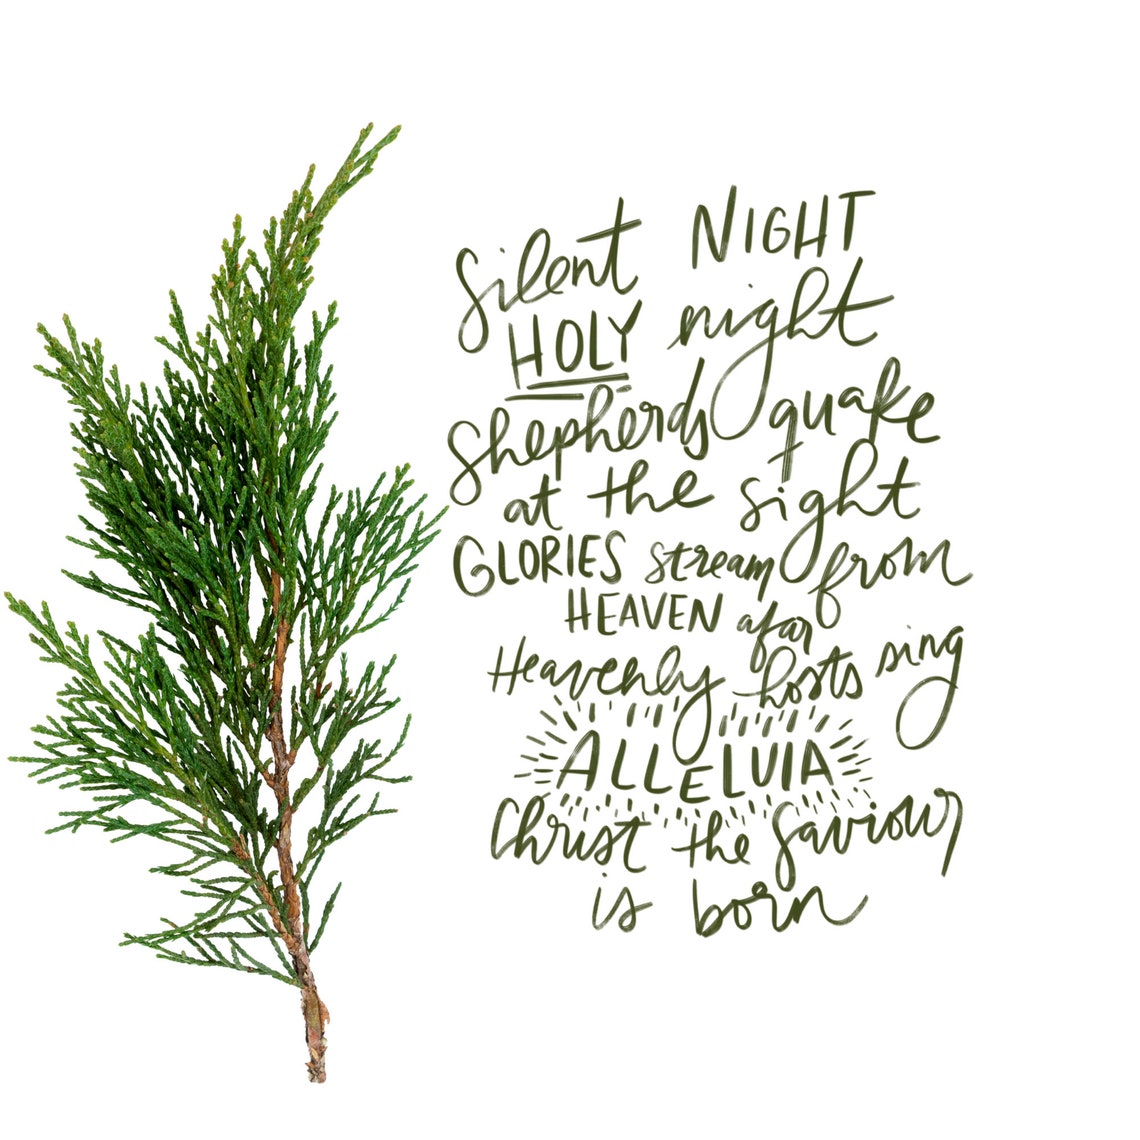 Silent NIGHT
HOLY night
Shepherds quake
at the sight
GLORIES stream from
HEAVEN afar
Heavenly hosts sing
ALLELUIA
Christ the Saviour
is born